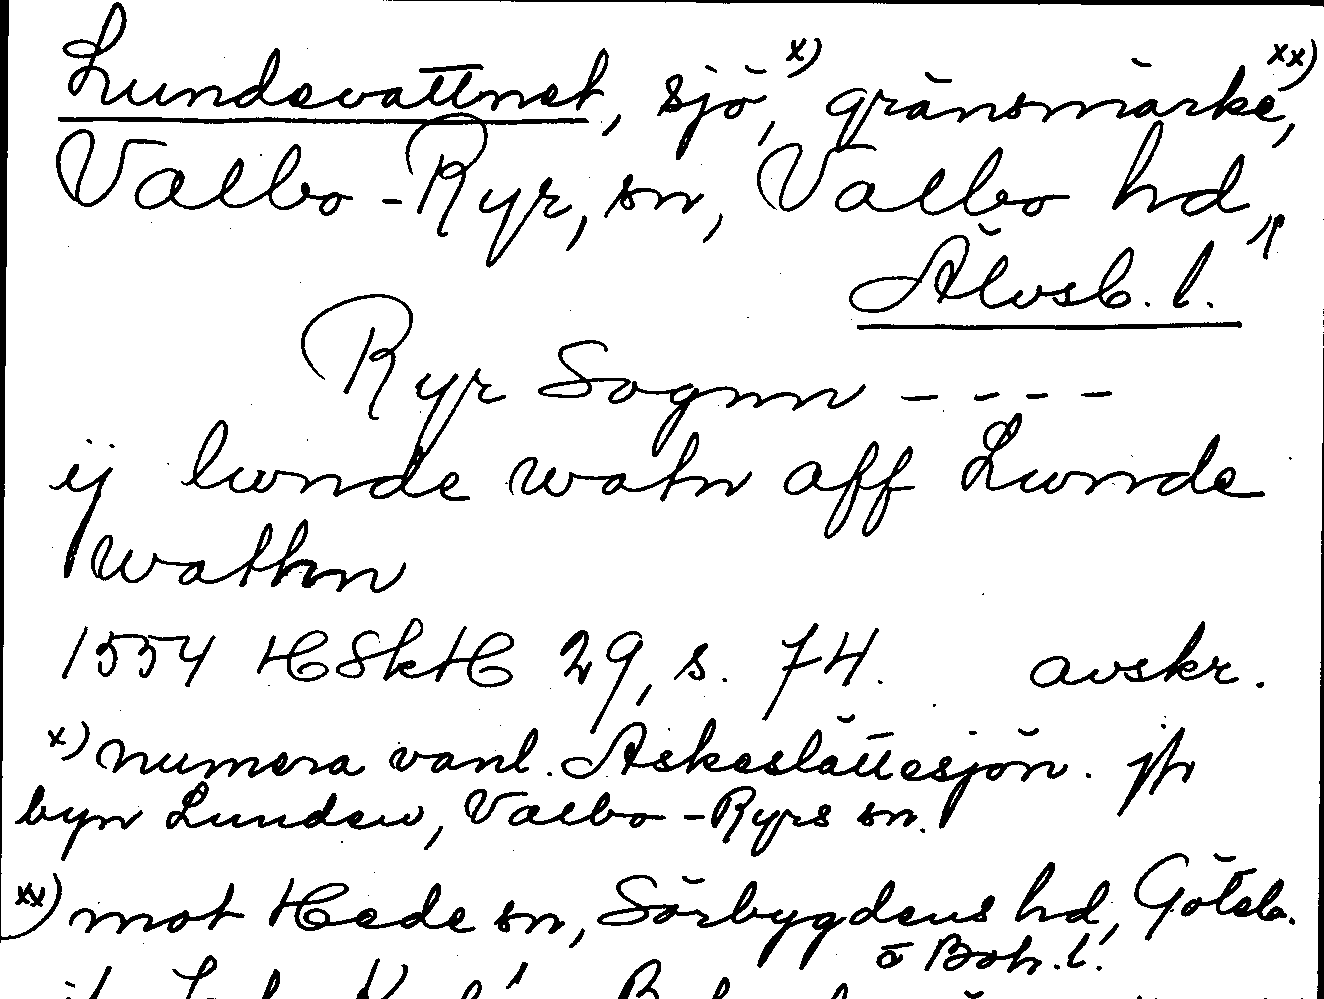 Lundevattnet, sjö,x) gränsmärke,xx)
Valbo-Ryr, sn, Valbo hd,
Älvsb. l.
Ryr Sognn - - - -
ij lunde watn aff Lunde
wathn
1554 HSkH 29, s. 74. avskr.
x) numera vanl. Askeslättesjön. jfr
byn Lunden, Valbo-Ryrs sn.
xx) mot Hede sn, Sörbygdens hd, Göteb.
o Boh. l.